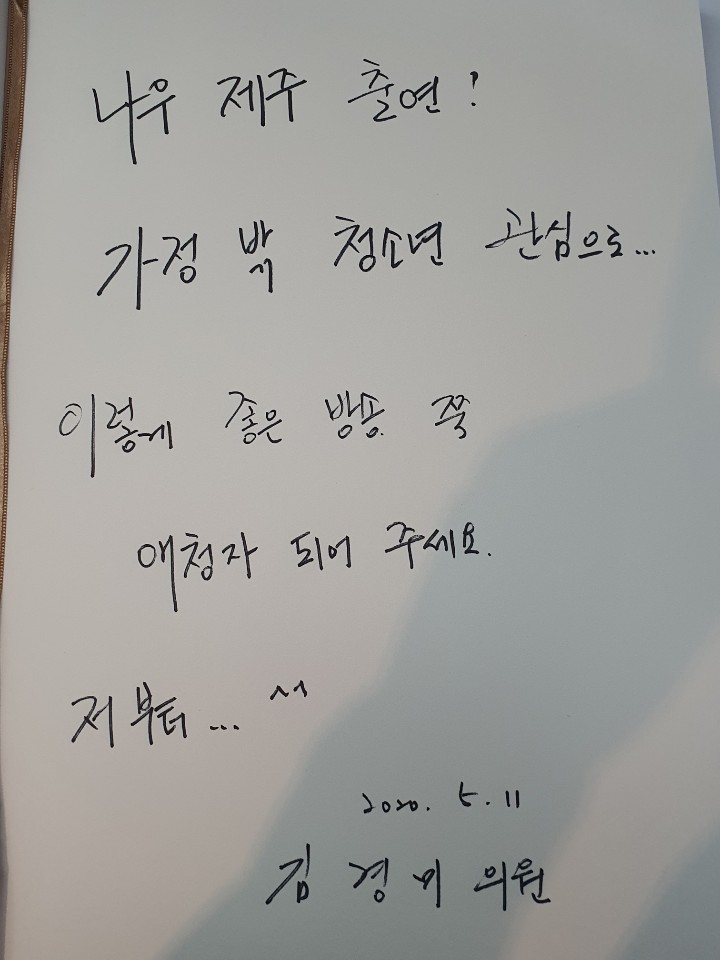 나우 제주 출연!
가정 밖 청소년 관심으로...
이렇게 좋은 방송 쭉
애청자 되어 주세요.
저부터... ^^
2020. 5. 11
김경미 의원